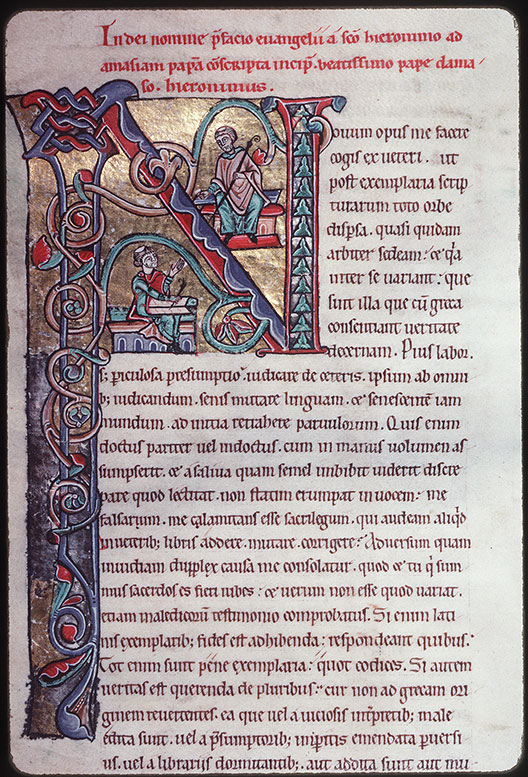 In dei nomine p̄facio evangelii a sc̄o hieronimo ad
amasiam papā cōscripta incip̄. beatissimo pape dama
so. hieronimus.
Nouum opus me facere
cogis ex veteri. ut
post exemplaria scrip
turarum toto orbe
dispsa. quasi quidam
arbiter sedeam: & q̄a
inter se variant: que
sint illa que cū greca
consentiant veritate
decernam. Pius labor.
s; piculosa presumptio. iudicare de ceteris. ipsum ab omni
b; iudicandum. senis mutare linguam. & senescentē iam
mundum. ad initia retrahere paruulorum. Quis enim
doctus pariter vel indoctus. cum in manus volumen as
sumpserit. & a saliua quam semel imbibit viderit discre
pare quod lectitat. non statim erumpat in uocem: me
falsarium. me calamitans esse sacrilegum. qui audeam aliq̄d
in veterib; libris addere. mutare. corrigere: Aduersum quam
inuidiam duplex causa me consolatur. quod & tu q̄ sum
mus sacerdos es fieri iubes: & verum non esse quod variat.
etiam maledicorū testimonio comprobatus. Si enim lati
nis exemplarib; fides est adhibenda: respondeant quibus.
Tot enim sunt pene exemplaria: quot codices. Si autem
veritas est querenda de pluribus: cur non ad grecam ori
ginem reuertentes. ea que vel a uiciosis int̄pretib; male
edita sunt. vel a p̄sumptorib; inpitis emendata peruersi
us. vel a librariis dormitantib; aut addita sunt aut mu